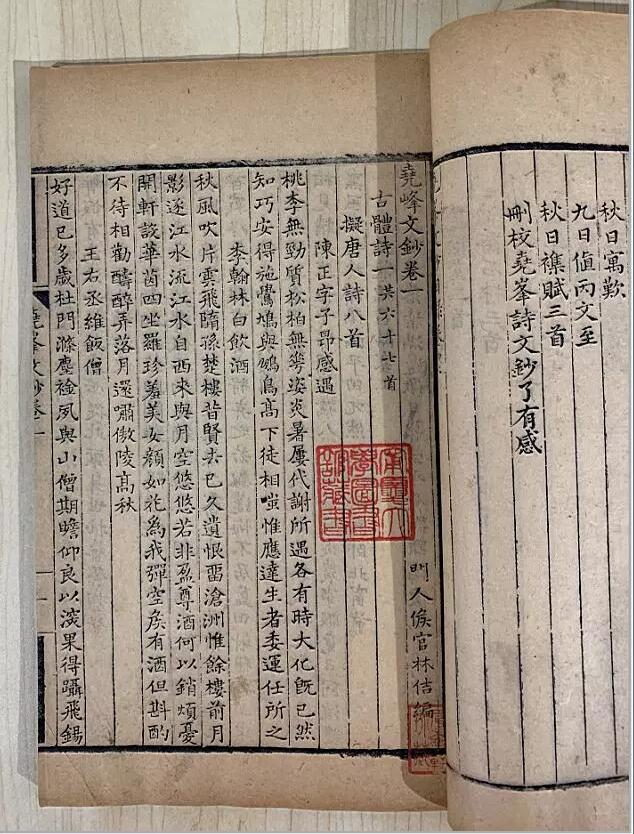 秋日寓歎
九日值丙文至
秋日襍賦三首
刪校堯峯詩文鈔了有感
堯峰文鈔卷一
門人侯官林佶編
古體詩一共六十七首
擬唐人詩八首
陳正字子昂感遇
桃李無勁質松柏無蕚姿炎暑屢代謝所遇各有時大化旣已然
知巧安得施鸒鳩與鵾鳥高下徒相嗤惟應達生者委運任所之
李翰林白飲酒
秋風吹片雲飛隋孫楚樓昔賢去已久遺恨畱滄洲惟餘樓前月
影逐江水流江水自西來與月空悠悠若非盈尊酒何以銷煩憂
開軒設華茵四坐羅珍羞美女顏如花為我彈空矦有酒但斟酌
不待相勸醻醉弄落月還嘯傲陵高秋
王右丞維飯僧
好道已多歲杜門滌塵襟夙與山僧期瞻仰良以深果得躡飛錫
堯峰文鈔卷一
學圖書
館藏書